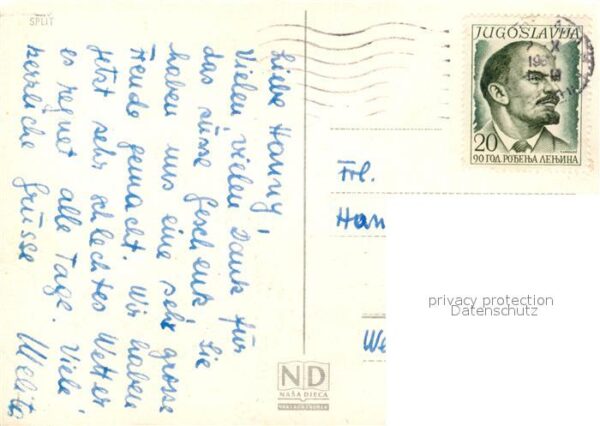 SPLIT
Liebe Hanny,
Vielen vielen Dank für
das süsse Geschenk Sie
haben uns eine sehr grosse
Freude gemacht. Wir haben
jetzt sehr schlechtes Wetter
es regnet alle Tage. Viele
herrliche Grüsse
Melita
JUGOSLAVIJA
20
90 ГОД. РОЂЕЊА ЛЕЊИНА
Frl.
Han
We
privacy protection
Datenschutz
ND
NAŠA DJECA